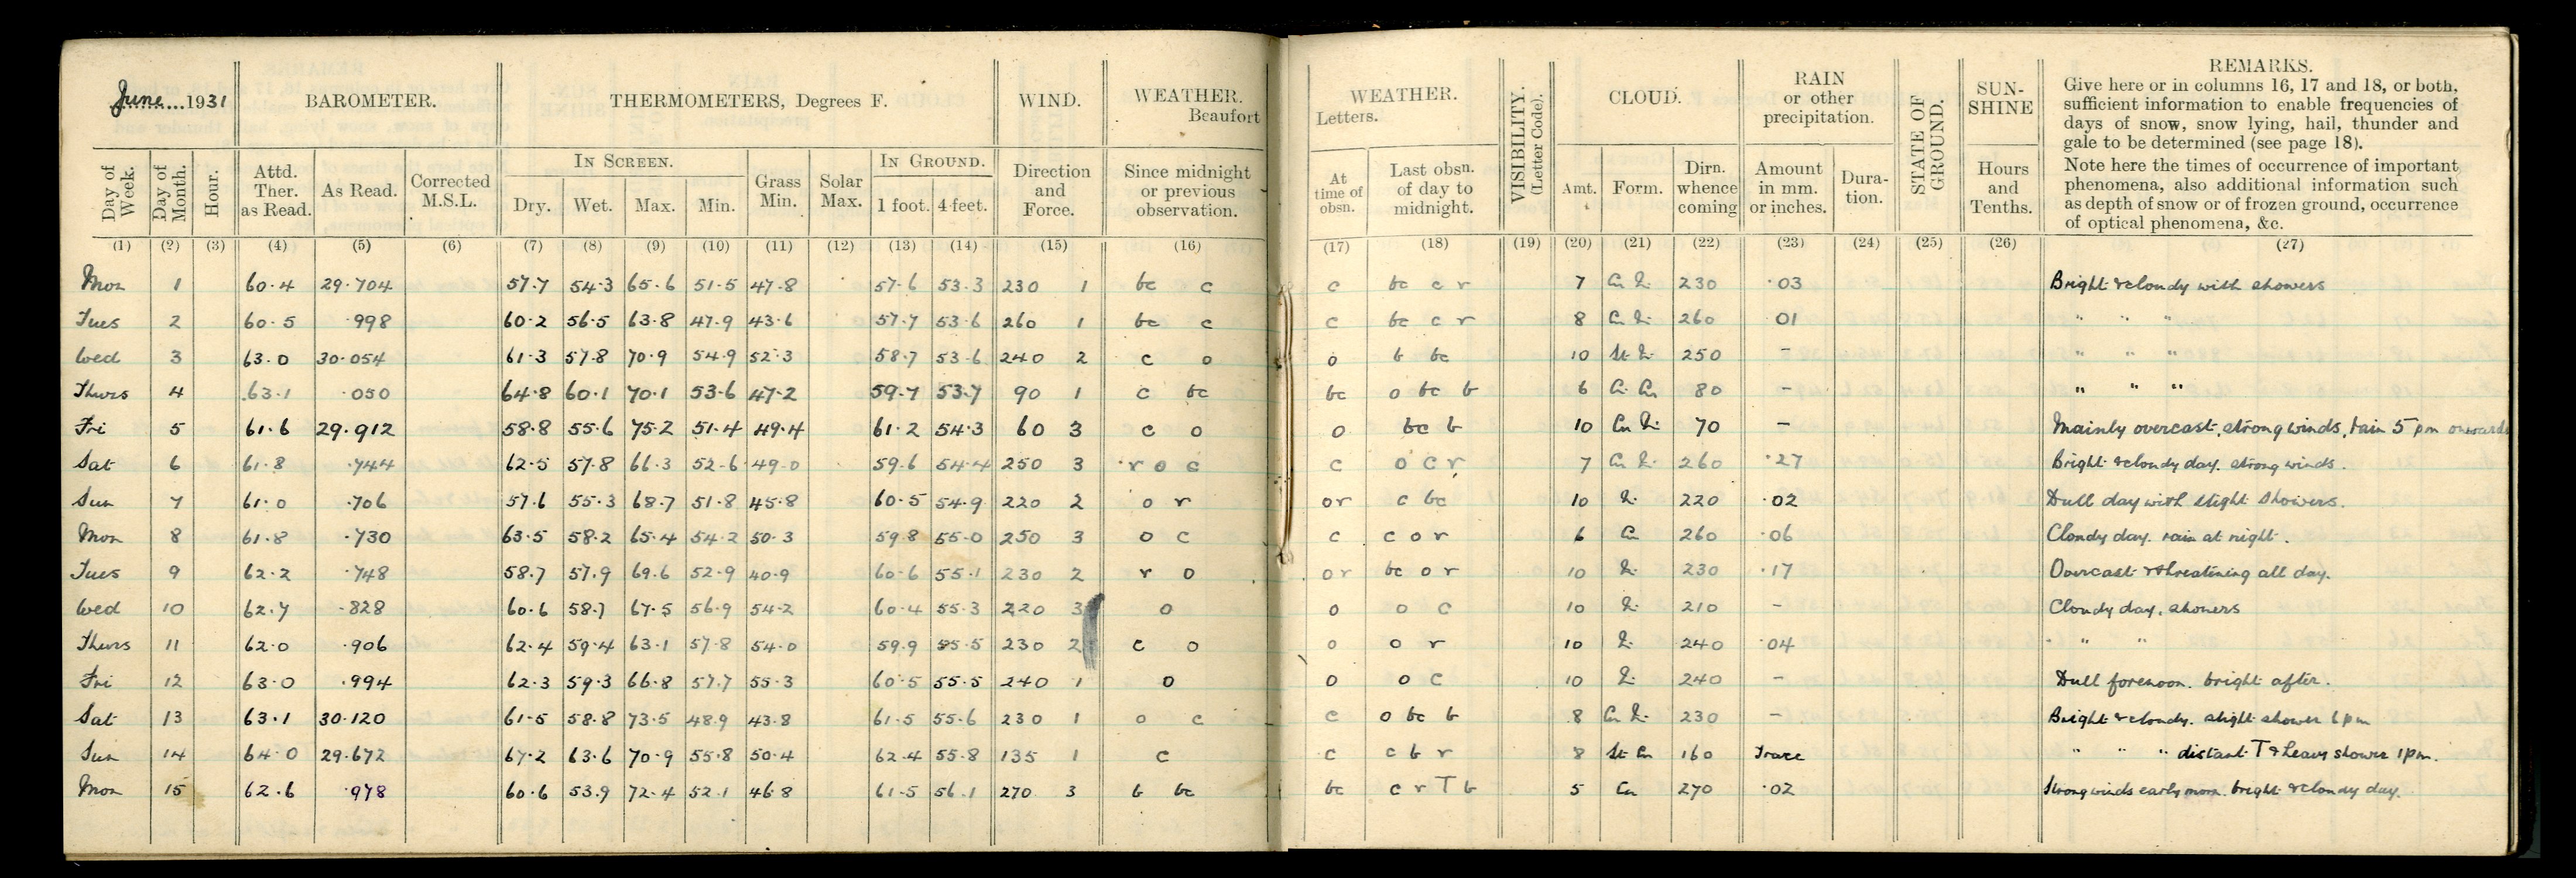 June 1931 BAROMETER. THERMOMETERS, Degrees F. WIND. WEATHER. Beaufort WEATHER. Letters. VISIBILITY. (Letter Code). CLOUD. RAIN or other precipitation. STATE OF GROUND. SUN-SHINE REMARKS.
Give here or in columns 16, 17 and 18, or both,
sufficient information to enable frequencies of
days of snow, snow lying, hail, thunder and
gale to be determined (see page 18).
Note here the times of occurrence of important
phenomena, also additional information such
as depth of snow or of frozen ground, occurrence
of optical phenomena, &c.
IN SCREEN. IN GROUND.
Day of Week. Day of Month. Hour. Attd. Ther. as Read. As Read. Corrected M.S.L. Dry. Wet. Max. Min. Grass Min. Solar Max. 1 foot. 4 feet. Direction and Force. Since midnight or previous observation. At time of obsn. Last obsn. of day to midnight. Amt. Form. Dirn. whence coming Amount in mm. or inches. Dura-tion. Hours and Tenths.
(1) (2) (3) (4) (5) (6) (7) (8) (9) (10) (11) (12) (13) (14) (15) (16) (17) (18) (19) (20) (21) (22) (23) (24) (25) (26) (27)
Mon 1 60.4 29.704 57.7 54.3 65.6 51.5 47.8 57.6 53.3 230 1 bc c c bc c r 7 230 .03 Bright & cloudy with showers
Tues 2 60.5 .998 60.2 56.5 63.8 47.9 43.6 57.7 53.6 260 1 bc c c bc c r 8 260 .01 " " "
Wed 3 63.0 30.054 61.3 57.8 70.9 54.9 52.3 58.7 53.6 240 2 c o o b bc 10 250 – " " "
Thurs 4 63.1 .050 64.8 60.1 70.1 53.6 47.2 59.7 53.7 90 1 c bc bc o bc b 6 Ci Cu 80 – " " "
Fri 5 61.6 29.912 58.8 55.6 75.2 51.4 49.4 61.2 54.3 60 3 c o o bc b 10 70 – Mainly overcast, strong winds, rain 5 pm onwards
Sat 6 61.8 .744 62.5 57.8 66.3 52.6 49.0 59.6 54.4 250 3 r o c c o c r 7 260 .27 Bright & cloudy day. strong winds.
Sun 7 61.0 .706 57.6 55.3 68.7 51.8 45.8 60.5 54.9 220 2 o r or c bc 10 220 .02 Dull day with slight showers.
Mon 8 61.8 .730 63.5 58.2 65.4 54.2 50.3 59.8 55.0 250 3 o c c c o r 6 Cu 260 .06 Cloudy day. rain at night.
Tues 9 62.2 .748 58.7 57.9 69.6 52.9 40.9 60.6 55.1 230 2 r o or bc o r 10 230 .17 Overcast & threatening all day.
Wed 10 62.7 .828 60.6 58.7 67.5 56.9 54.2 60.4 55.3 220 3 o o o c 10 210 – Cloudy day, showers
Thurs 11 62.0 .906 62.4 59.4 63.1 57.8 54.0 59.9 55.5 230 2 c o o o r 10 240 .04 " "
Fri 12 63.0 .994 62.3 59.3 66.8 57.7 55.3 60.5 55.5 240 1 o o o c 10 240 – Dull forenoon. bright after.
Sat 13 63.1 30.120 61.5 58.8 73.5 48.9 43.8 61.5 55.6 230 1 o c c o bc b 8 230 – Bright & cloudy. slight shower 6 pm
Sun 14 64.0 29.672 67.2 63.6 70.9 55.8 50.4 62.4 55.8 135 1 c c c b r 8 St Cu 160 Trace " " " distant T & heavy shower 1 pm.
Mon 15 62.6 .978 60.6 53.9 72.4 52.1 46.8 61.5 56.1 270 3 b bc bc c r T b 5 Cu 270 .02 Strong winds early morn. bright & cloudy day.